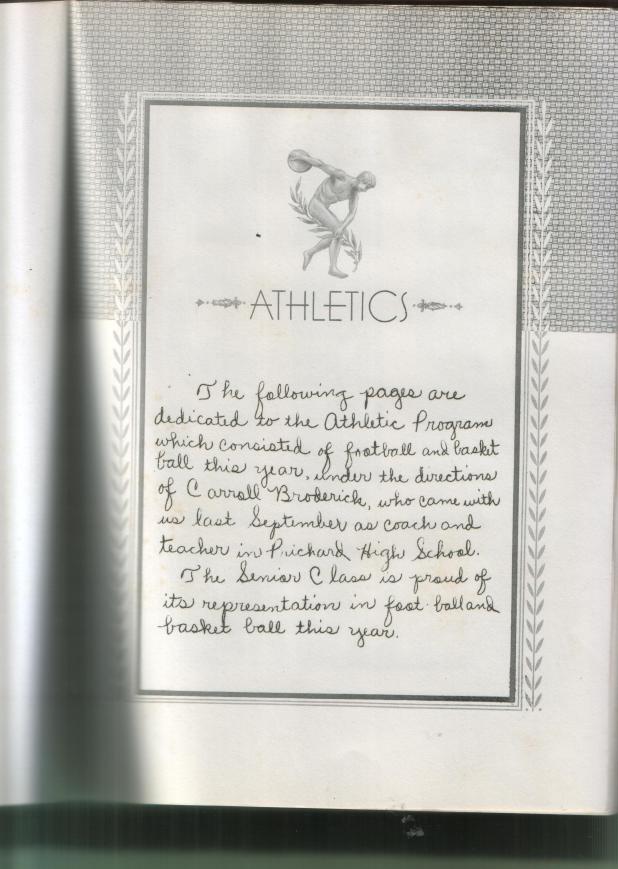 ATHLETICS
The following pages are
dedicated to the Athletic Program
which consisted of football and basket
ball this year, under the directions
of Carroll Broderick, who came with
us last September as coach and
teacher in Prichard High School.
The Senior Class is proud of
its representation in foot-ball and
basket ball this year.